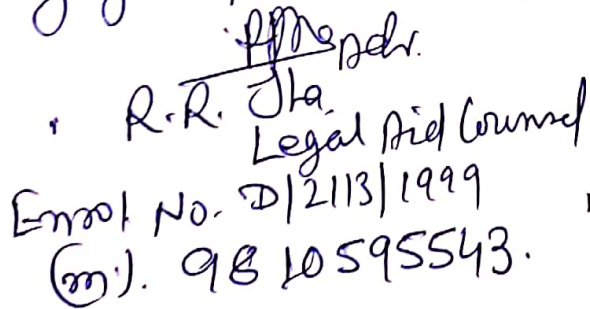 Adv.
R.R. Jha
Legal Aid Counsel
Enrol No. D/2113/1999
(m). 9810595543.